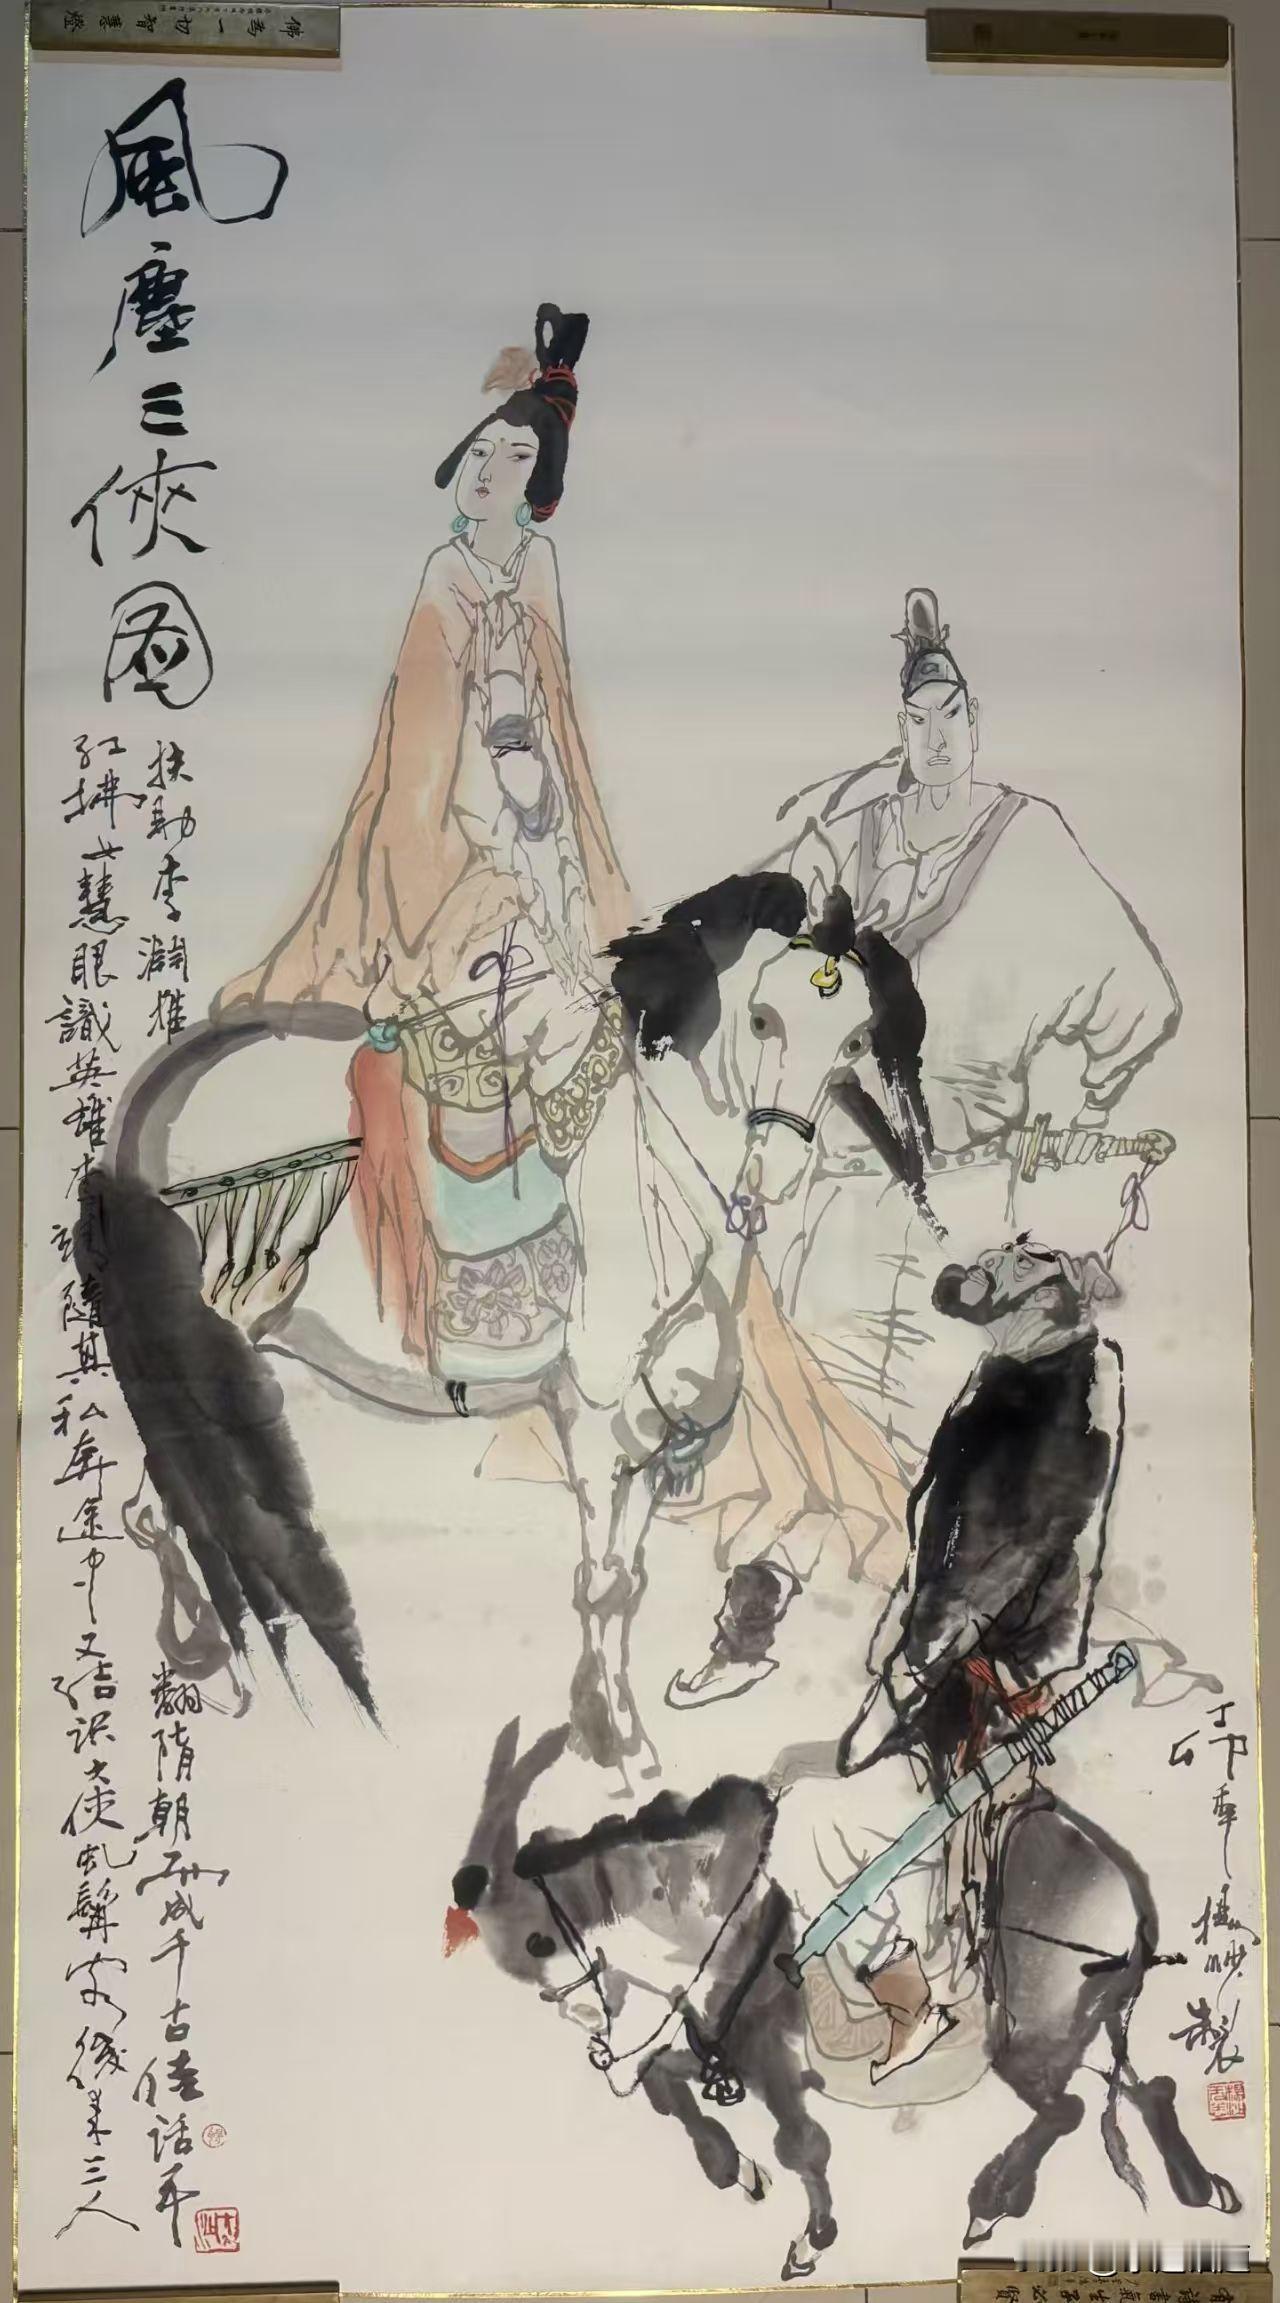 風塵三俠圖
红拂女慧眼識英雄李靖隨其私奔途中又结识大侠虬髯客後来三人
扶助李淵推
翻隋朝而成千古佳话
丁卯年
製
佛為一切智慧燈